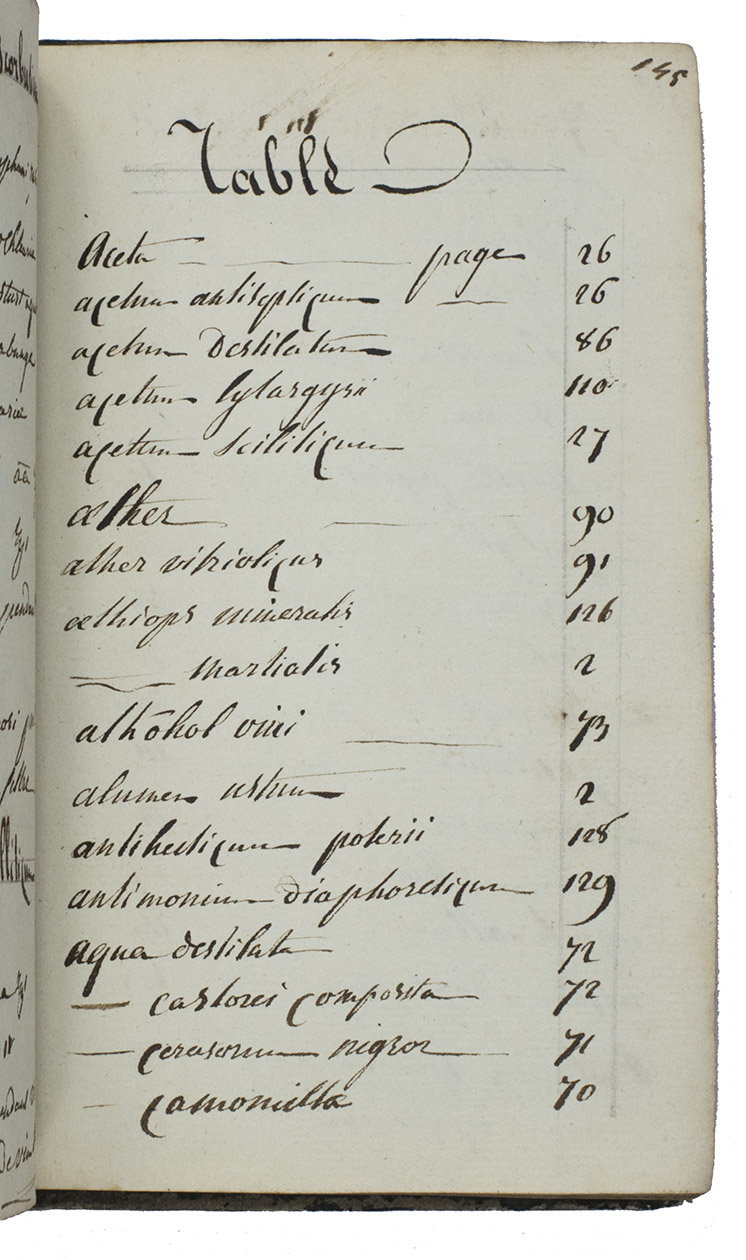 145
Table
Aceta page 26
acetum antisepticum 26
acetum Destilatum 86
acetum lytargyrii 110
acetum scilliticum 27
æther 90
æther vitriolicus 91
æthiops mineralis 126
martialis 2
alkohol vini 73
alumen ustum 2
antihecticum poterii 128
antimonium diaphoreticum 129
aqua destilata 72
castorei composita 72
cerasorum nigror 71
camomilla 70